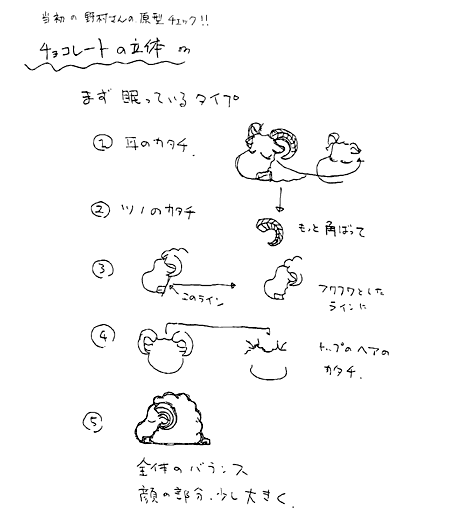 当初の野村さんの原型チェック!!
チョコレートの立体
まず眠っているタイプ
① 耳のカタチ.
② ツノのカタチ
もっと角ばって
③
このライン
フワフワとした
ラインに
④
トップのヘアの
カタチ.
⑤
全体のバランス
顔の部分.少し大きく.